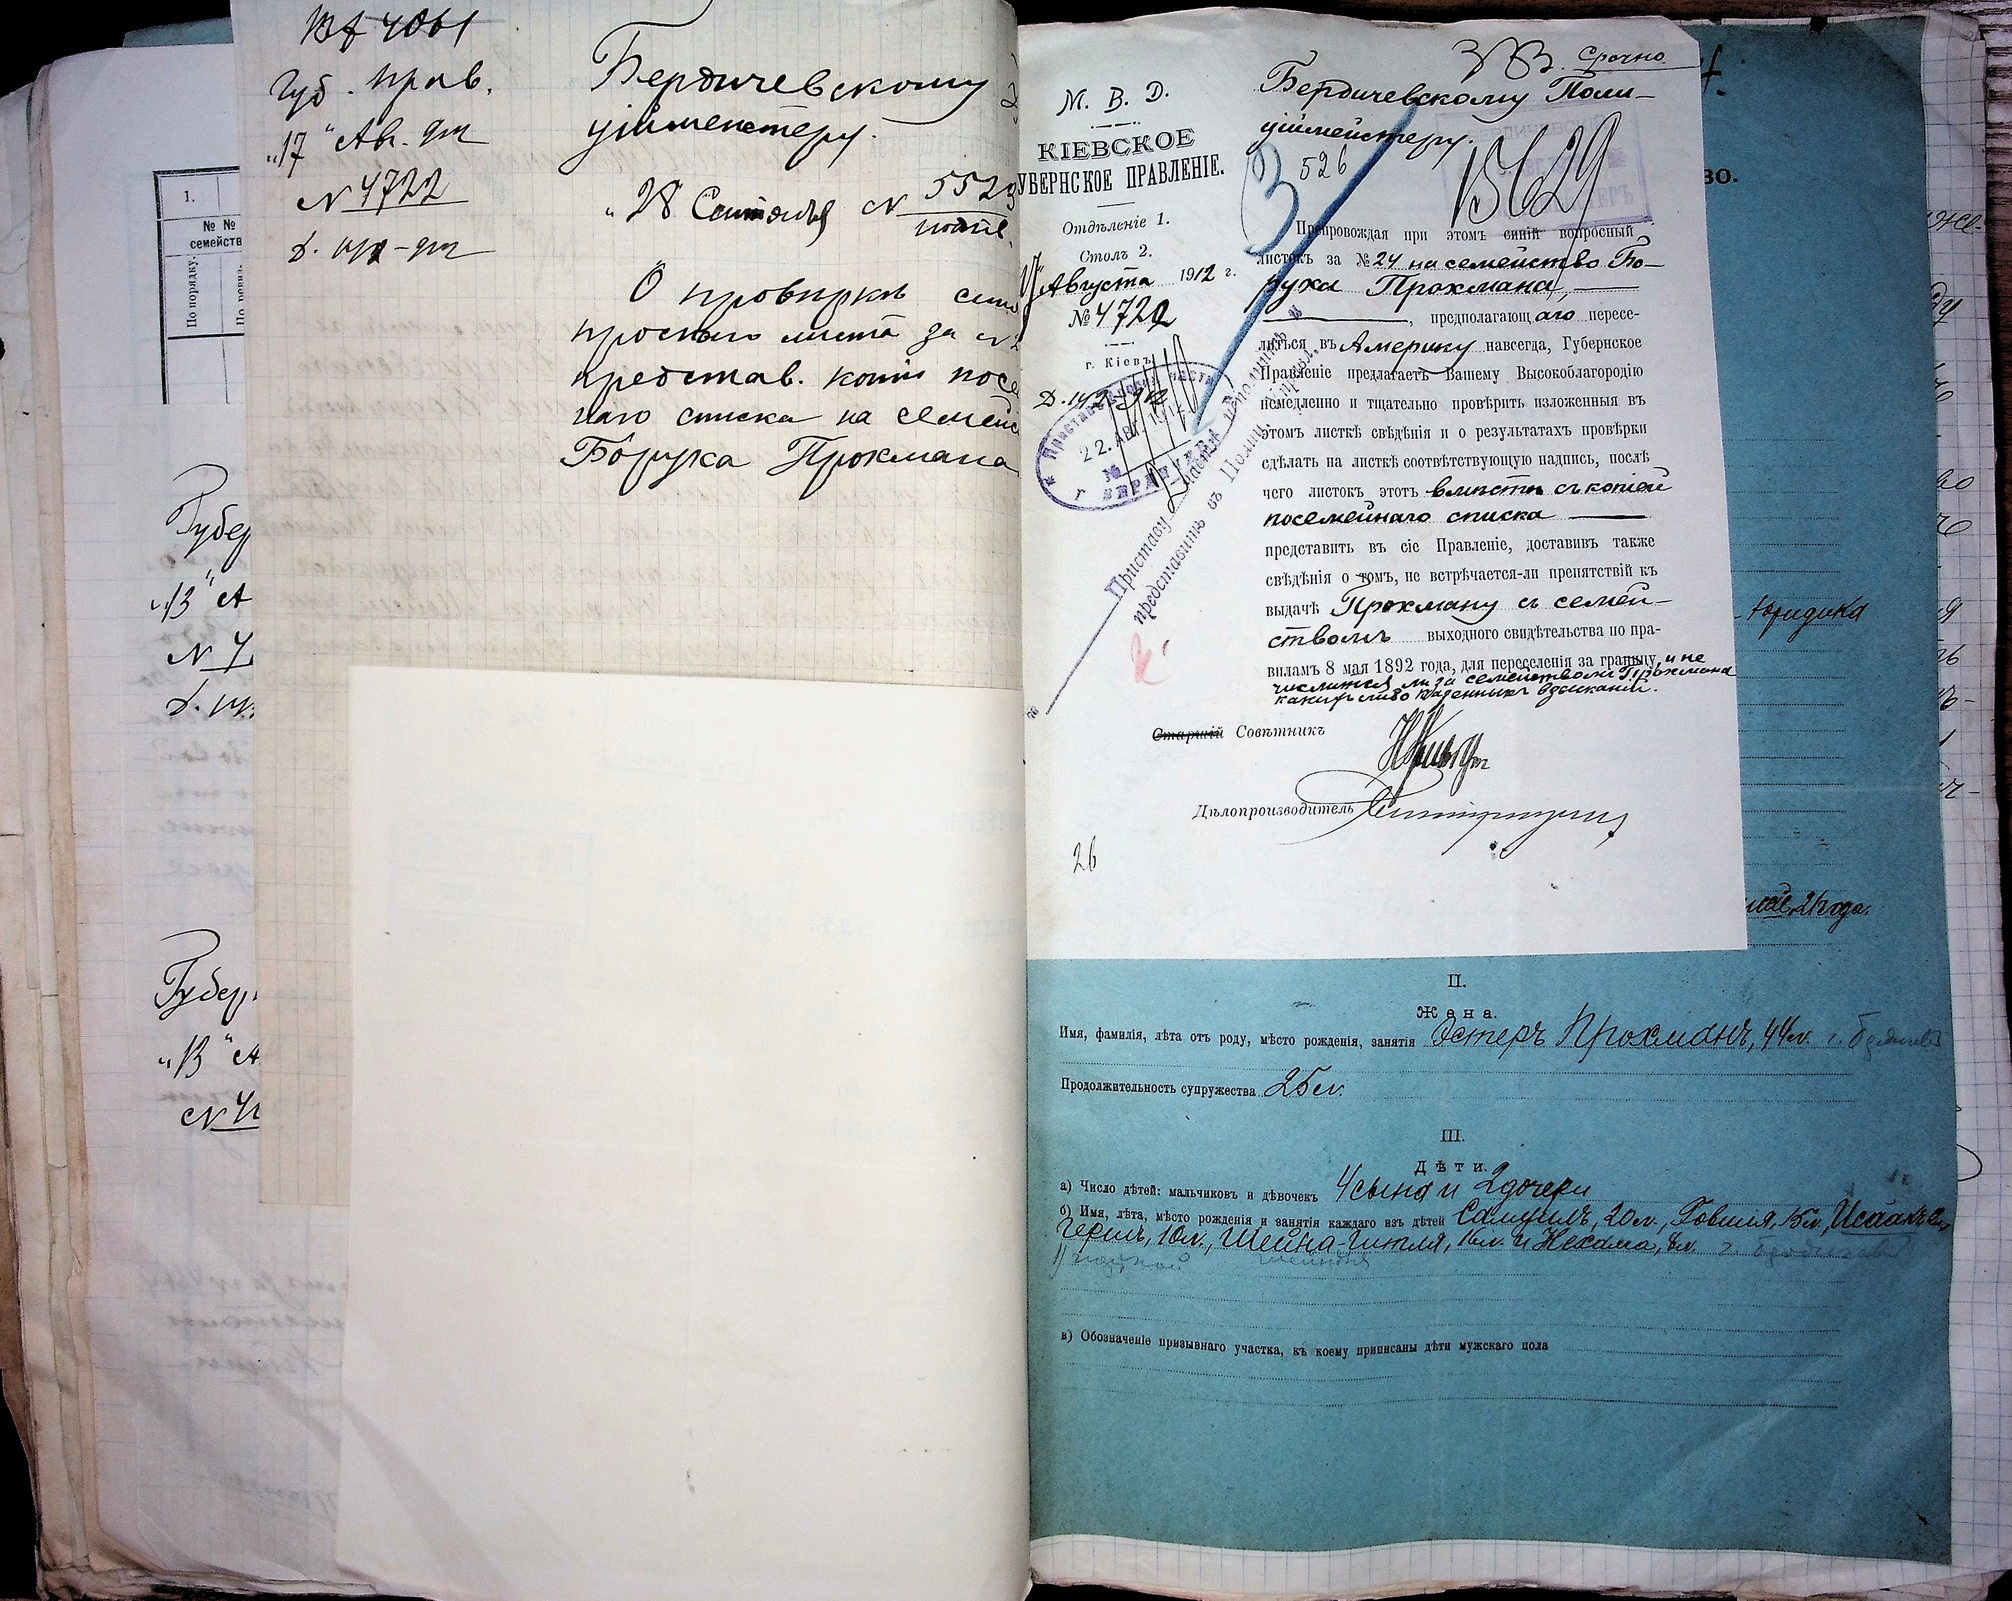 1.
№ №
семейств
По порядку.
По ревиз.
Губер
"13" А
N 4
Губер
"13" А
N 4
N 4061
Губ. Прав.
"17" Авг. 912
N 4722
Бердичевскому
ційместеру.
"28 Сентября N 5529
О проверкѣ
проснаго листа за N 2
представ. копіи посе
наго списка на семейс
Боруха Прохмана
Срочно.
М. В. Д.
КІЕВСКОЕ
УБЕРНСКОЕ ПРАВЛЕНІЕ.
Отдѣленіе 1.
Столъ 2.
17 Августа 1912 г.
№ 4722
г. Кіевъ
Бердичевскому Поли-
ційместеру.
3 526
15629
Препровождая при этомъ синій вопросный
листокъ за № 24 на семейство Бо-
руха Прохмана, —
, предполагающаго пересе-
литься въ Америку навсегда, Губернское
Правленіе предлагаетъ Вашему Высокоблагородію
немедленно и тщательно провѣрить изложенныя въ
этомъ листкѣ свѣдѣнія и о результатахъ провѣрки
сдѣлать на листкѣ соотвѣтствующую надпись, послѣ
чего листокъ этотъ вмѣстѣ съ копіей
посемейнаго списка —
представить въ сіе Правленіе, доставивъ также
свѣдѣнія о томъ, не встрѣчается-ли препятствій къ
выдачѣ Прохману съ семей-
ствомъ выходного свидѣтельства по пра-
виламъ 8 мая 1892 года, для переселенія за границу, и не
числится ли за семействомъ Прохмана
какихъ либо казенныхъ взысканій.
22. АВГ. 1912
Приставу исполнить и
представить въ Полиц. Управл.
Старшій Совѣтникъ
Дѣлопроизводитель
26
ВО.
Юридика
21 года.
II.
Жена.
Имя, фамилія, лѣта отъ роду, мѣсто рожденія, занятія Эстеръ Прохманъ, 44 л. г. Бердичевъ
Продолжительность супружества 25 л.
III.
Дѣти.
а) Число дѣтей: мальчиковъ и дѣвочекъ 4 сына и 2 дочери
б) Имя, лѣта, мѣсто рожденія и занятія каждаго изъ дѣтей Самуилъ, 20 л., Говшія, 15 л., Исаакъ
10 л., Шейна-Гитля, 16 л. и Нехама, 8 л. г. Бердичевъ
в) Обозначеніе призывнаго участка, къ коему приписаны дѣти мужскаго пола